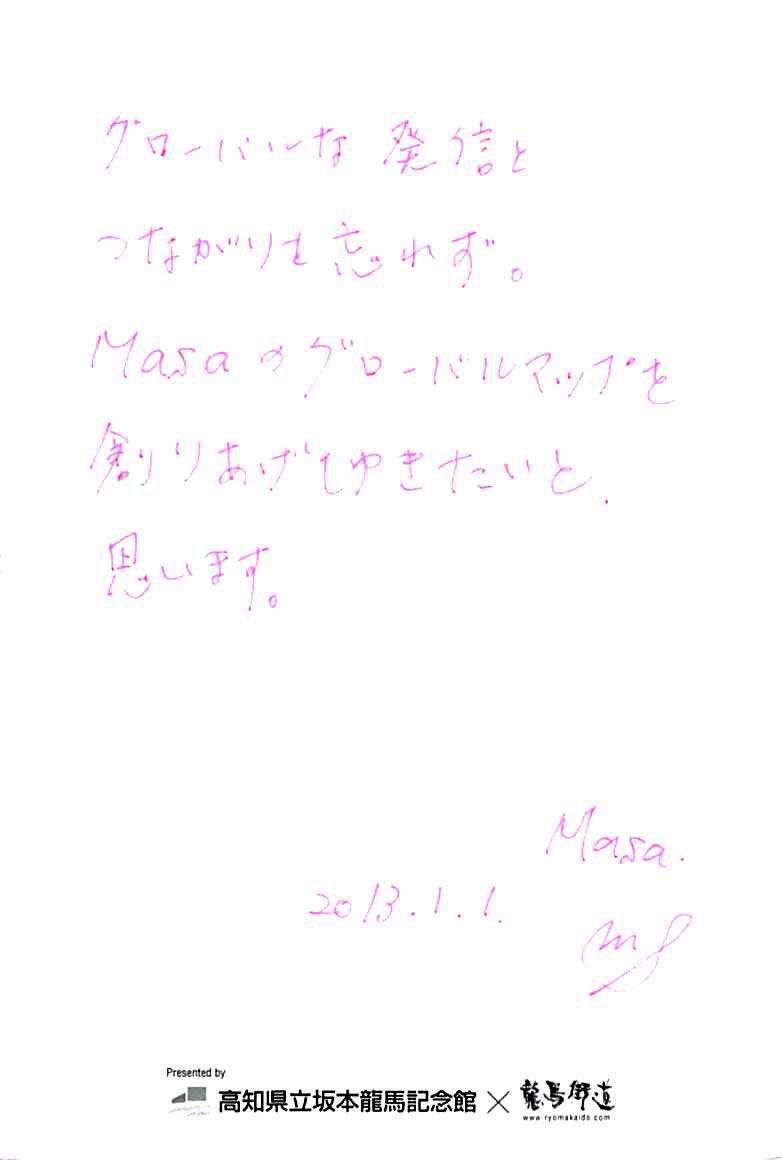 グローバルな 発信と
つながりを忘れず。
Masaのグローバルマップを
創りあげてゆきたいと
思います。
Masa.
2013.1.1.
Presented by
高知県立坂本龍馬記念館 × 龍馬街道
www.ryomakaido.com